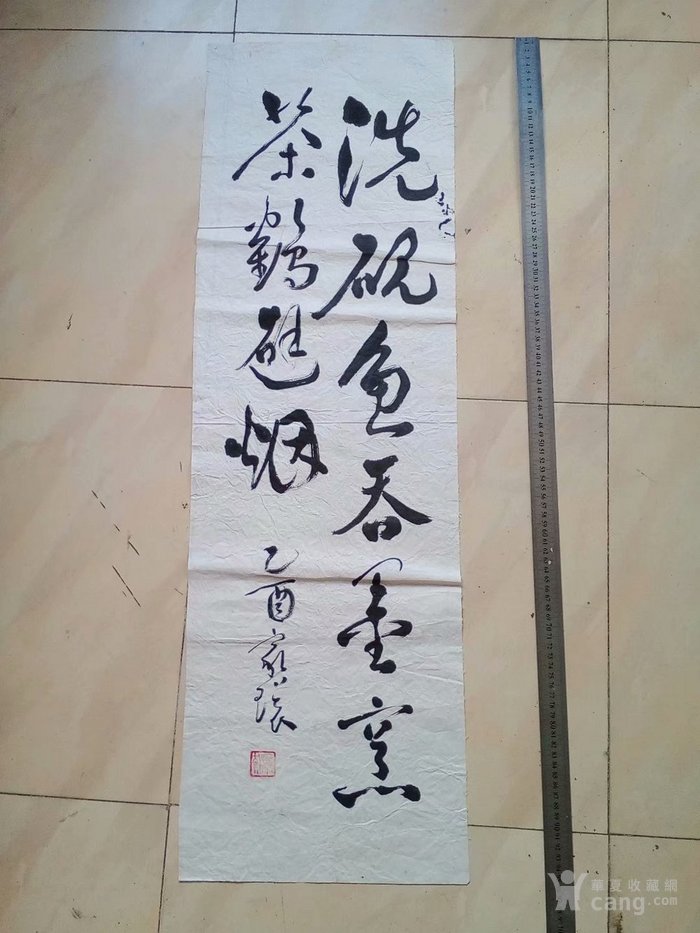 洗砚鱼吞墨烹
茶鹤避烟
乙酉家
華夏收藏網
cang.com